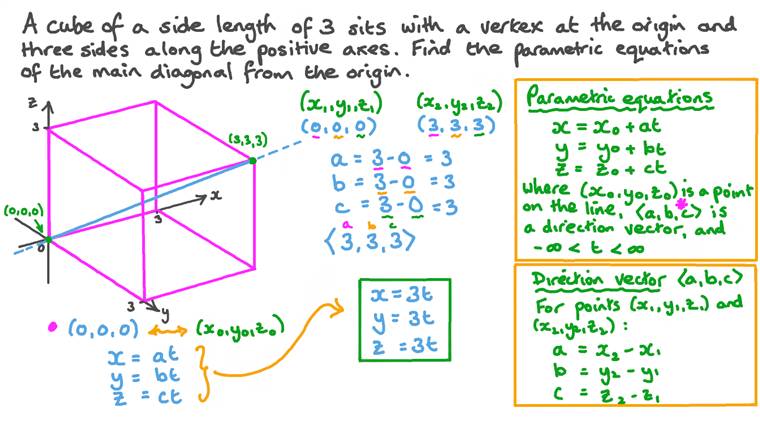 A cube of a side length of 3 sits with a vertex at the origin and
three sides along the positive axes. Find the parametric equations
of the main diagonal from the origin.
z
3
(3,3,3)
(0,0,0)
0
x
3
3
y
(x₁,y₁,z₁) (x₂,y₂,z₂)
(0,0,0) (3,3,3)
a = 3-0 = 3
b = 3-0 = 3
c = 3-0 = 3
a b c
⟨3,3,3⟩
• (0,0,0) ↔ (x₀,y₀,z₀)
x = at
y = bt
z = ct
x = 3t
y = 3t
z = 3t
Parametric equations
x = x₀ + at
y = y₀ + bt
z = z₀ + ct
where (x₀,y₀,z₀) is a point
on the line, ⟨a,b,c⟩ is
a direction vector, and
-∞ < t < ∞
Direction vector ⟨a,b,c⟩
For points (x₁,y₁,z₁) and
(x₂,y₂,z₂) :
a = x₂ - x₁
b = y₂ - y₁
c = z₂ - z₁